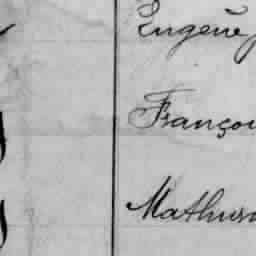 Eugène
Françoi
Mathuri